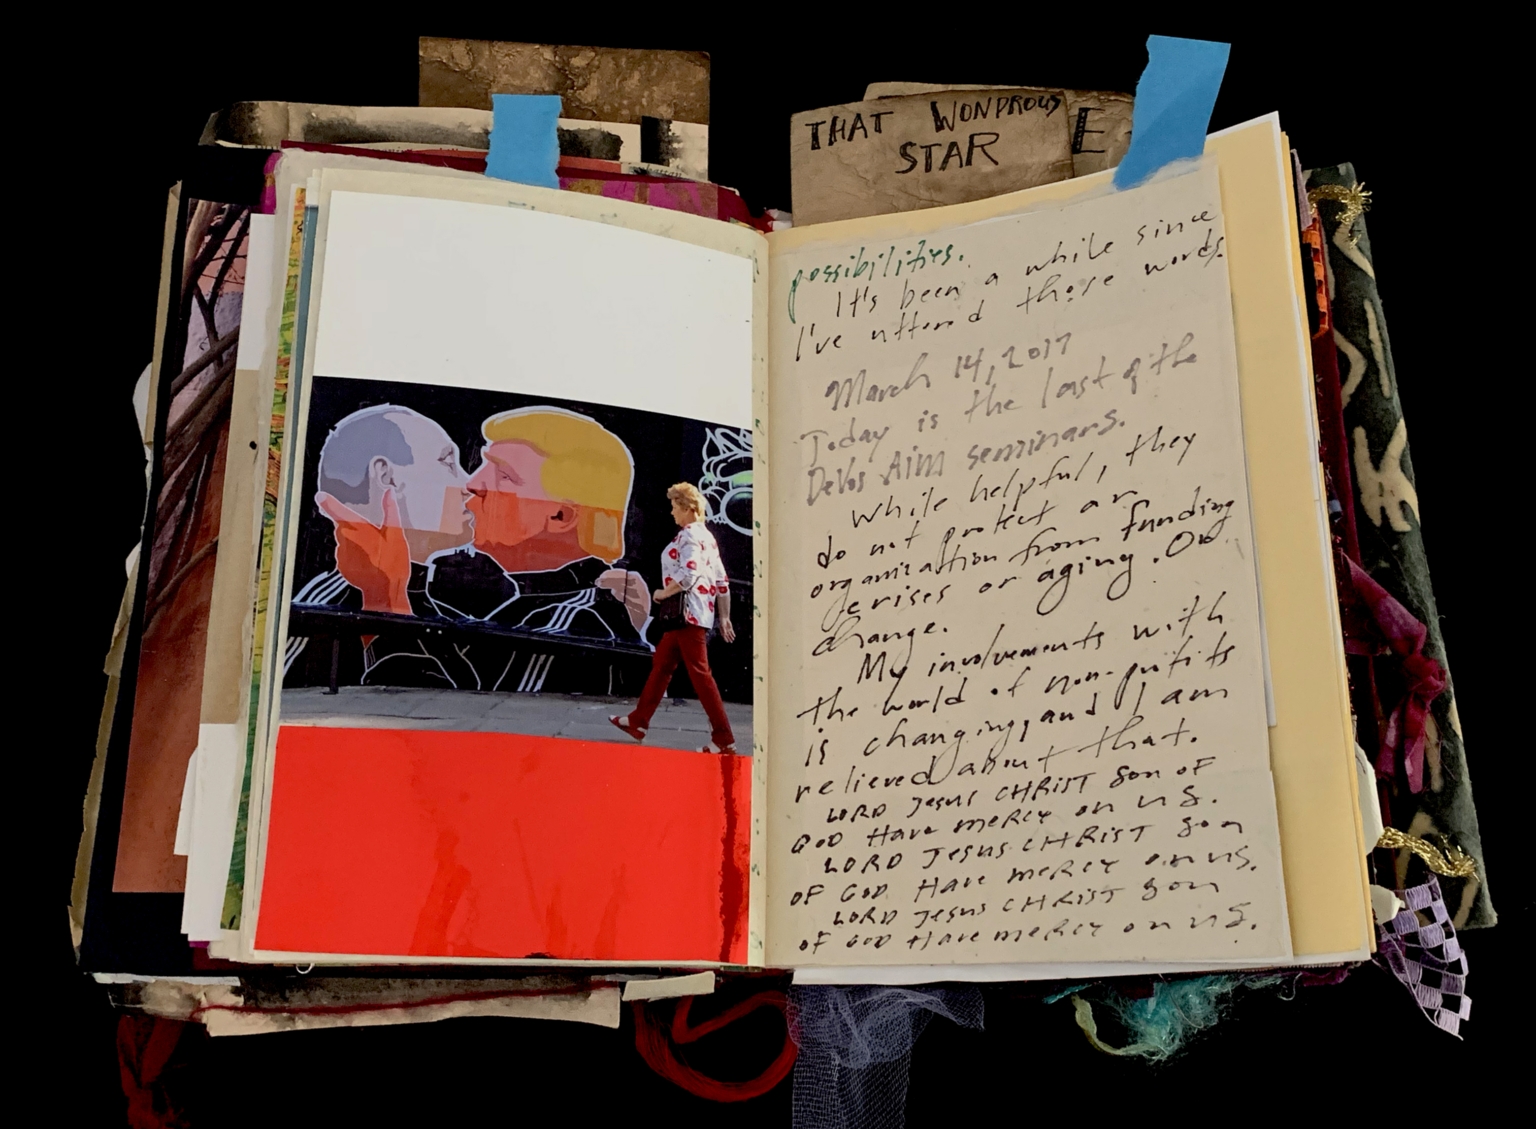 THAT WONDROUS
STAR
E
possibilities.
It's been a while since
I've uttered those words.
March 14, 2017
Today is the last of the
DeVos Aim seminars.
While helpful, they
do not protect an
organization from funding
crises or aging. Or
change.
My involvements with
the world of non-profits
is changing, and I am
relieved about that.
LORD Jesus CHRIST Son OF
GOD Have meRCY on us.
LORD Jesus CHRIST Son
OF GOD Have meRCY on us.
LORD Jesus CHRIST Son
OF GOD Have meRCY on us.